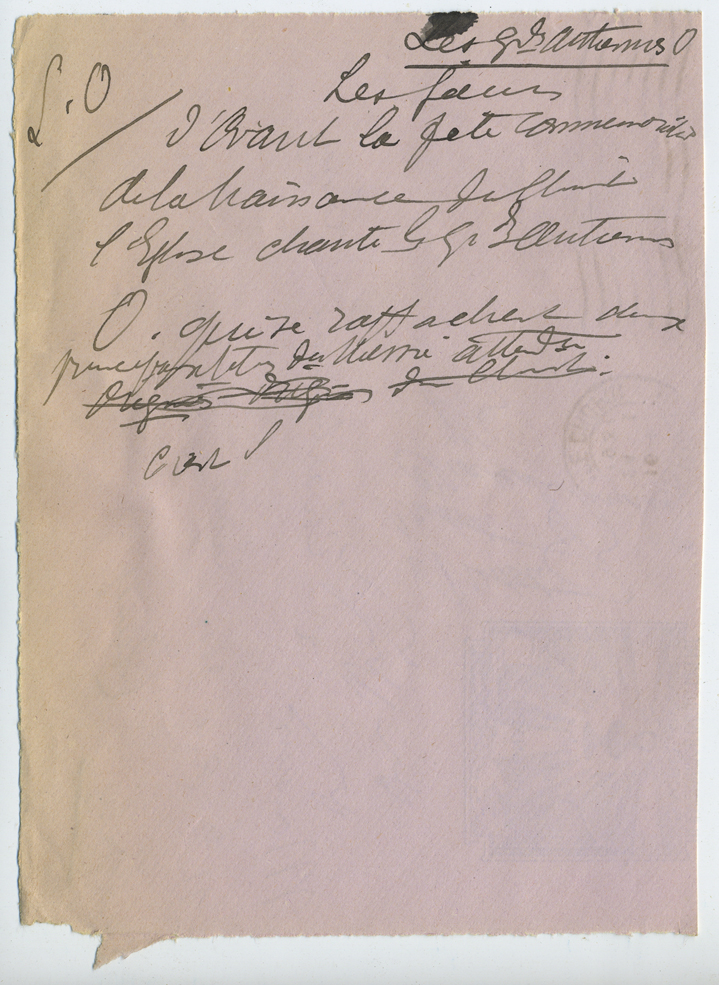 Les Gds antiennes O
L. O
Les jours
d'avant la fête commemorative
de la naissance du Christ
l'Eglise chante les Gdes Antiennes
O. qui se rattachent aux
principaux titres du Messie attendu
du Christ.
C'est